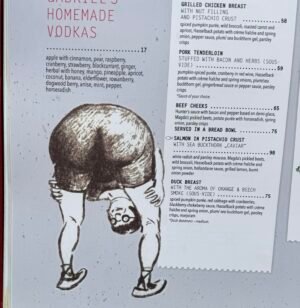 GABRIEL'S
HOMEMADE
VODKAS
17
apple with cinnamon, pear, raspberry,
cranberry, strawberry, blackcurrant, ginger,
herbal with honey, mango, pineapple, apricot,
coconut, banana, elderflower, rowanberry,
dogwood berry, anise, mint, pepper,
horseradish
GRILLED CHICKEN BREAST
WITH NUT FILLING
AND PISTACHIO CRUST
58
spiced pumpkin purée, wild broccoli, roasted carrot and
apricot, Hasselback potato with crème fraîche and spring
onion, pepper sauce, plum/ sea buckthorn gel, parsley
crisps
PORK TENDERLOIN
STUFFED WITH BACON AND HERBS (SOUS-
VIDE)
59
pumpkin-spiced purée, cranberry in red wine, Hasselback
potato with crème fraîche and spring onions, plum/sea
buckthorn gel, gingerbread sauce or pepper sauce, parsley
crisps
*Sauce of your choice.
BEEF CHEEKS
65
Hunter's sauce with bacon and pepper based on demi glace,
Magda's pickled beets, potato purée with horseradish, spring
onion, parsley crisps
SERVED IN A BREAD BOWL
76
SALMON IN PISTACHIO CRUST
WITH SEA BUCKTHORN „CAVIAR"
98
white radish and parsley mousse, Magda's pickled beets,
wild broccoli, Hasselback potato with crème fraîche and
spring onion, hollandaise sauce, grilled lemon, burnt
onion powder
DUCK BREAST
WITH THE AROMA OF ORANGE & BEECH
SMOKE (SOUS-VIDE)
75
spiced pumpkin purée, red cabbage with cranberries,
blackberry chokeberry sauce, Hasselback potato with crème
fraîche and spring onion, plum/ sea buckthorn gel, parsley
crisps, marjoram
*Duck doneness – medium.